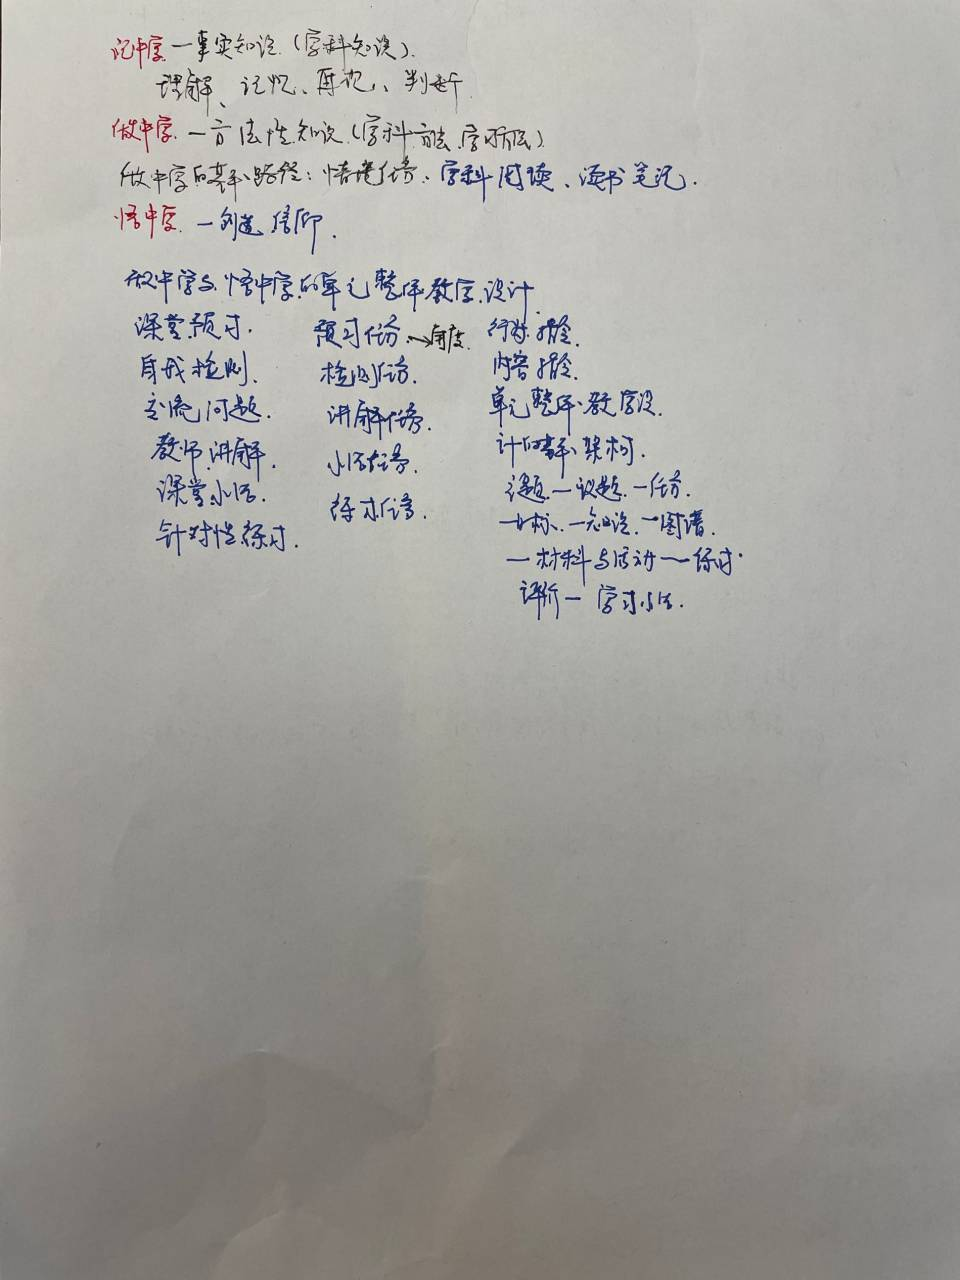 记中学—事实知识(学科知识).
理解、记忆、再现、判断
做中学—方法性知识(学科方法、学习方法)
做中学的基本路径:情境任务、学科阅读、读书笔记.
悟中学—创造信仰.
做中学与悟中学的单元整体教学设计
课堂预习. 预习任务→角度. 行为指令.
自我检测. 检测任务. 内容指令.
交流问题. 讲解任务. 单元整体教学设
教师讲解. 小结任务. 计的基本架构.
课堂小结. 练习任务. 课题—议题—任务.
针对性练习. —目标—知识—图谱.
—材料与活动—练习
评价—学习小结.